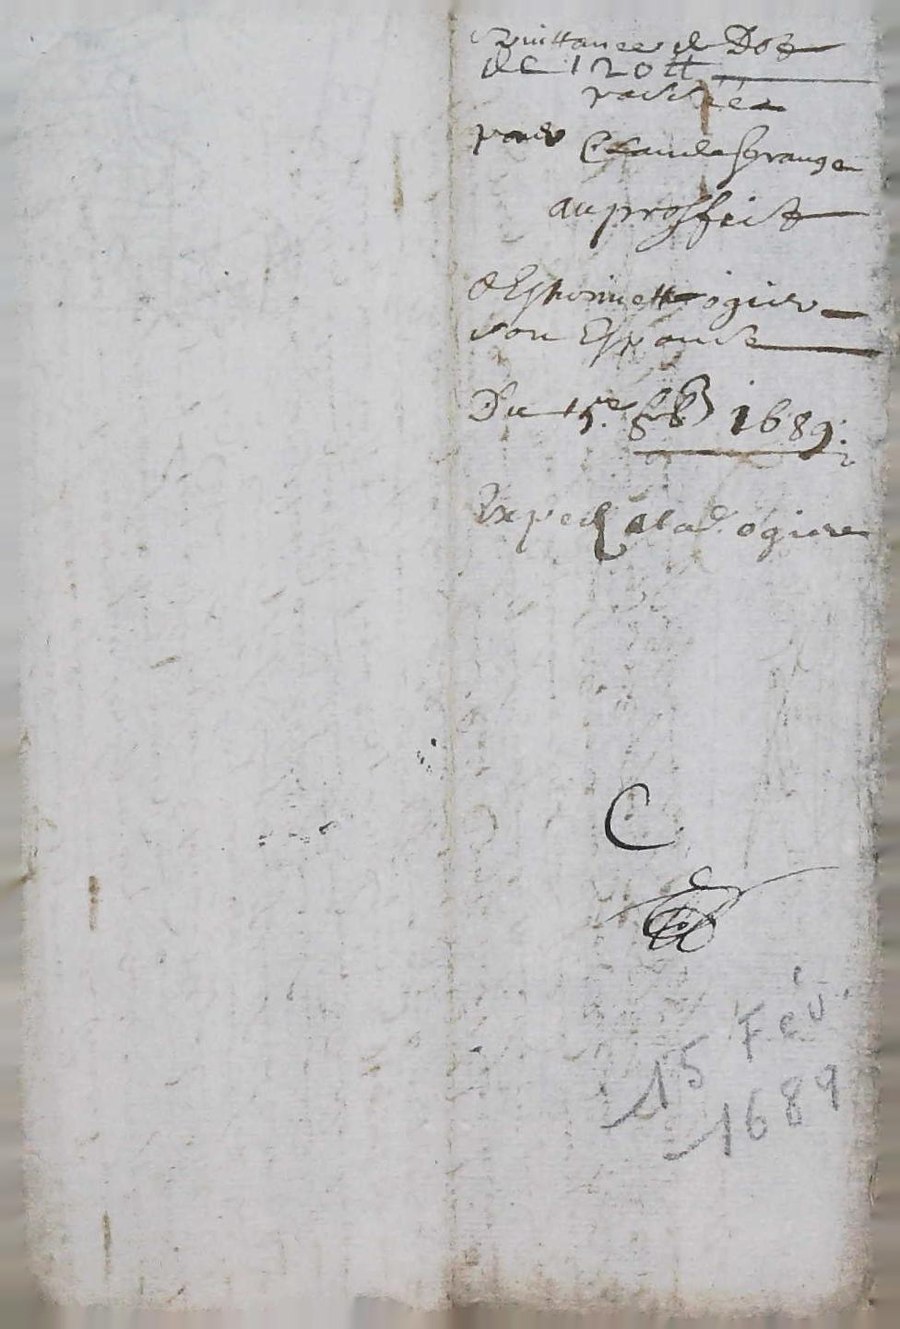 quittance de Dot
de 120 tt
passée
par Claude grange
au proffeict
d'Esthiennette ogier
son Espouse
Du 15e 1689
Exped a lad ogiere
C
15 Fév.
1689